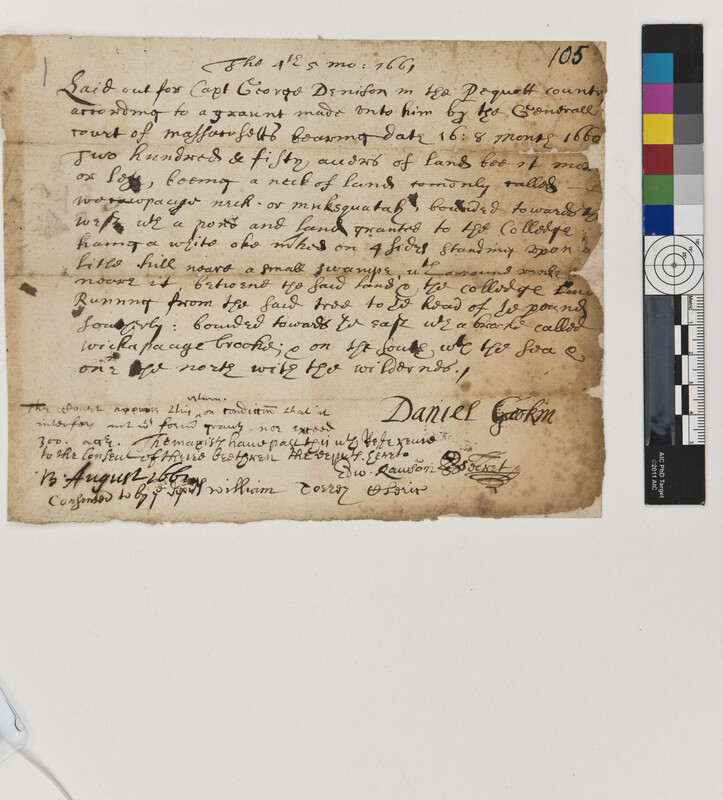 105
The 4th 5 mo: 1661
Laid out for Capt George Denison in the Pequott countr
according to a graunt made unto him by the Generall
court of massachusetts bearing date 16: 8 month 1660
Two hundred & fifty accers of land bee it mor
or less, beeing a neck of land comonly called
neck or muksquatah, bounded towards th
west wth a pond and land granted to the Colledge
haing a white oke mked on 4 sides standing upon a
litle hill neare a small swampe, wth
neere it, betweene the said land & the colledge land
Running from the said tree to ye head of ye pound
southerly: bounded towards ye east wth a brooke called
wickapauge brooke; & on the south wth the sea &
on the north with the wildernes.
Daniel Gookin
The Court this return on condicion that it
interfere not wth former graunts, nor exceed
300. acrs. The magists have past this wth Reference
to the Consent of theire brethren the deputs hereto
Edw. Rawson Secret
13. August 1661
Consented to by ye deputs William Torrey Cleric
AIC PhD Target
©2011 AIC